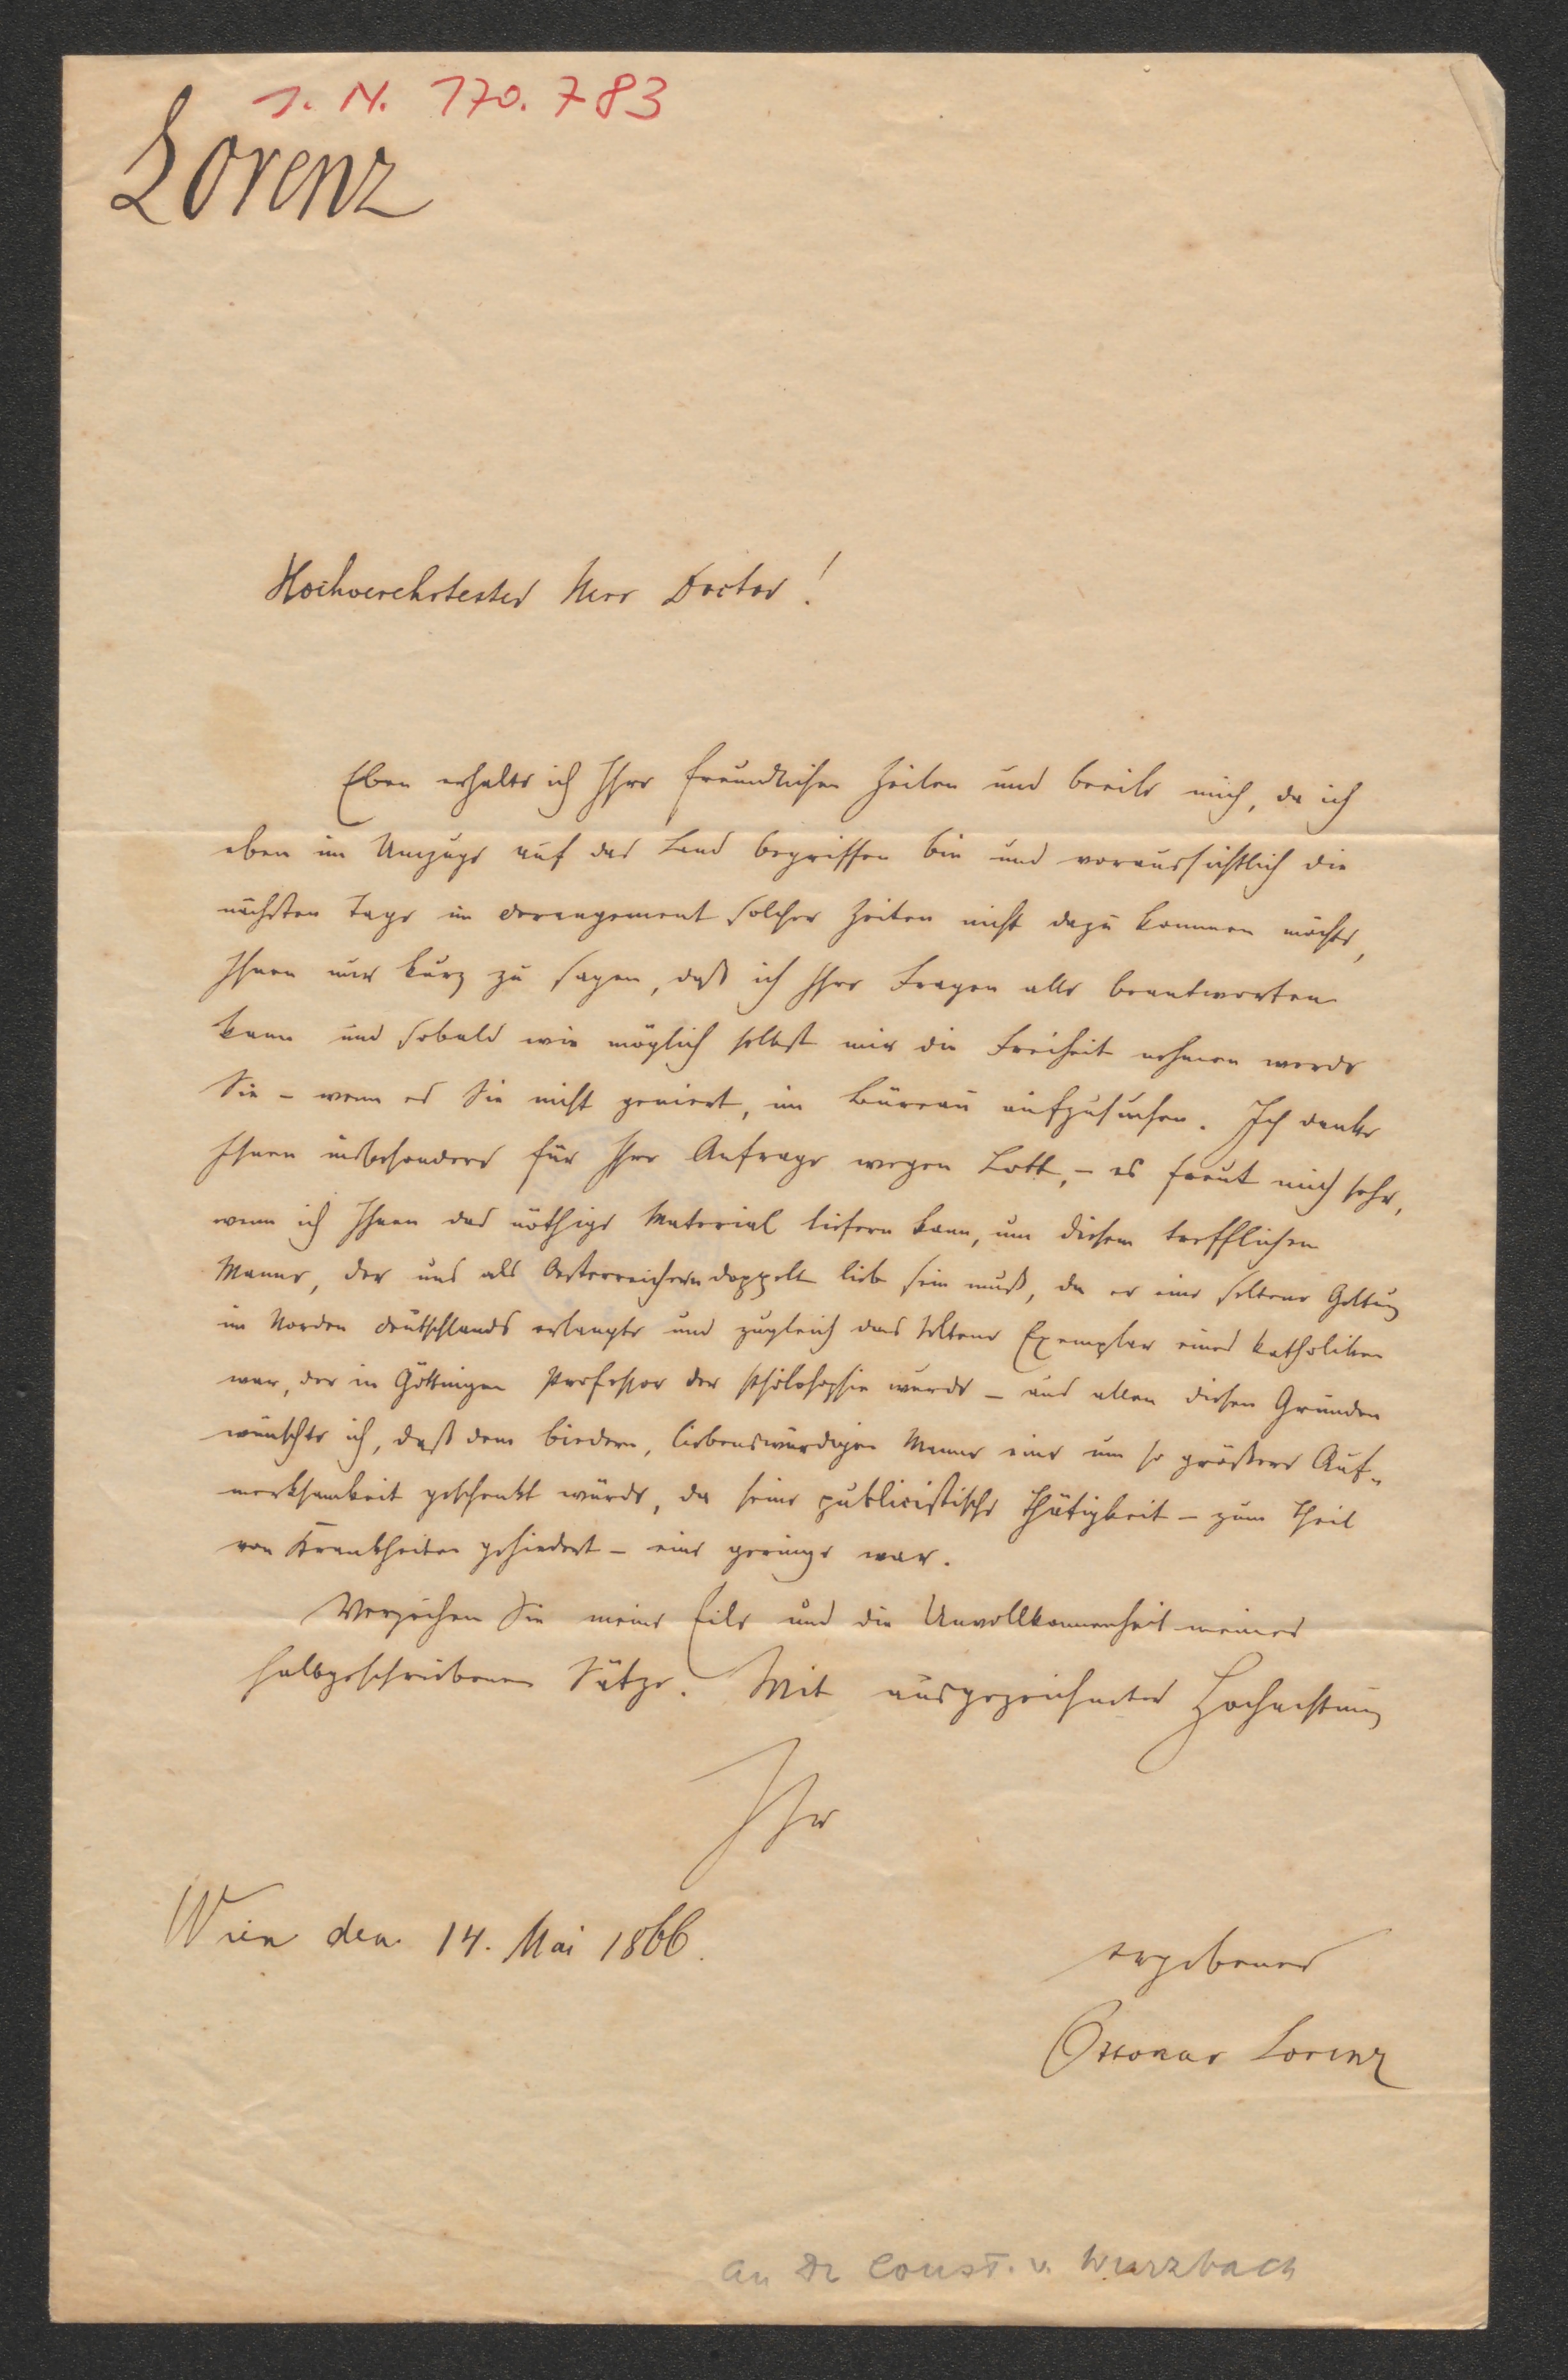 I. N. 170.783
Lorenz
Hochverehrtester Herr Doctor!
Eben erhalte ich Ihre freundlichen Zeilen und beeile mich, da ich
eben im Umzuge auf das Land begriffen bin und voraussichtlich die
nächsten Tage im derangement solcher Zeiten nicht dazu kommen möchte,
Ihnen nur kurz zu sagen, daß ich Ihre Fragen alle beantworten
kann und sobald wie möglich selbst mir die Freiheit nehmen werde
Sie – wenn es Sie nicht geniert, im Büreau aufzusuchen. Ich danke
Ihnen insbesondere für Ihre Anfrage wegen Lott, – es freut mich sehr,
wenn ich Ihnen das nöthige Material liefern kann, um diesem trefflichen
Manne, der uns als Oesterreichern doppelt lieb sein muß, da er eine seltene Geltung
im Norden Deutschlands erlangte und zugleich das seltene Exemplar eines Katholiken
war, der in Göttingen Professor der Philosophie wurde – aus allen diesen Gründen
wünschte ich, daß dem biedern, liebenswürdigen Manne eine um so größere Auf-
merksamkeit geschenkt würde, da seine publicistische Thätigkeit – zum Theil
von Krankheiten gehindert – eine geringe war.
Verzeihen Sie meine Eile und die Unvollkommenheit meiner
halbgeschriebenen Sätze. Mit ausgezeichneter Hochachtung
Ihr
Wien den 14. Mai 1866.
ergebener
Ottokar Lorenz
An Dr Const. v. Wurzbach